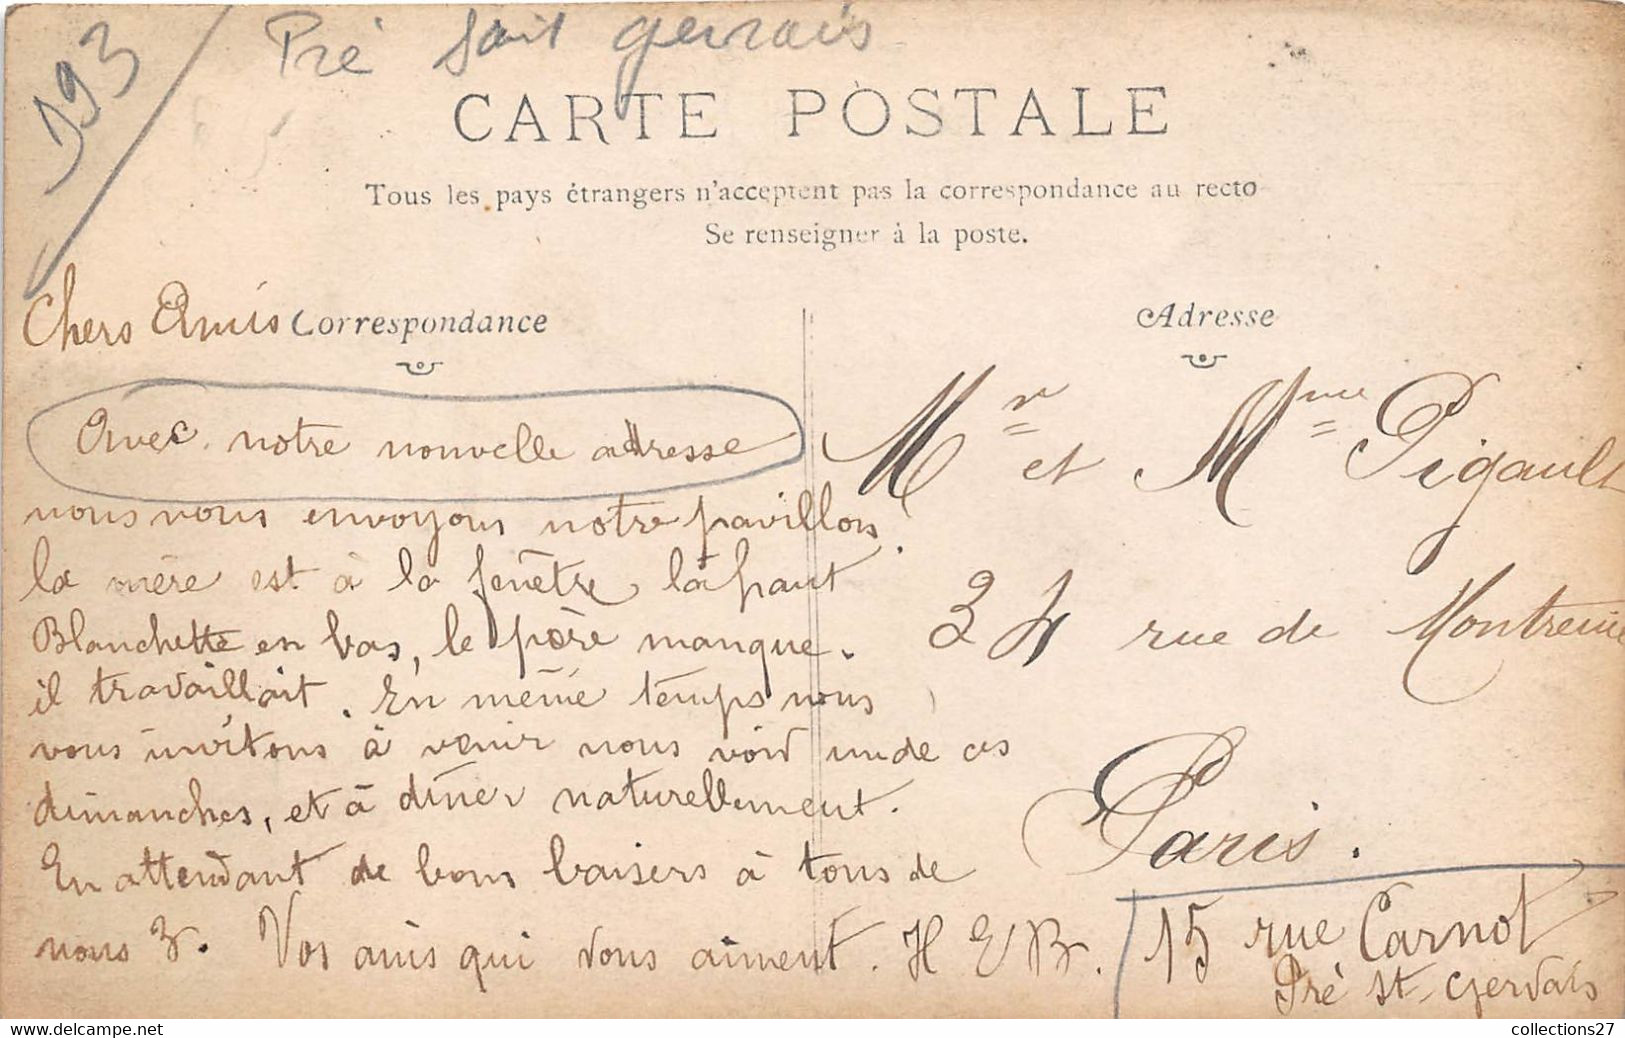 D93
Pré saint gervais
CARTE POSTALE
Tous les pays étrangers n'acceptent pas la correspondance au recto
Se renseigner à la poste.
Chers Amis
Correspondance
Avec notre nouvelle adresse
nous vous envoyons notre pavillon.
la mère est à la fenêtre là haut
Blanchette en bas, le père manque.
il travaillait. En même temps nous
vous invitons à venir nous voir un de ces
dimanches, et à dîner naturellement.
En attendant de bons baisers à tous de
nous 3. Vos amis qui vous aiment. H E B.
Adresse
Mr et Mme Pigault
34 rue de Montreuil
Paris.
15 rue Carnot
Pré St-Gervais
collections27